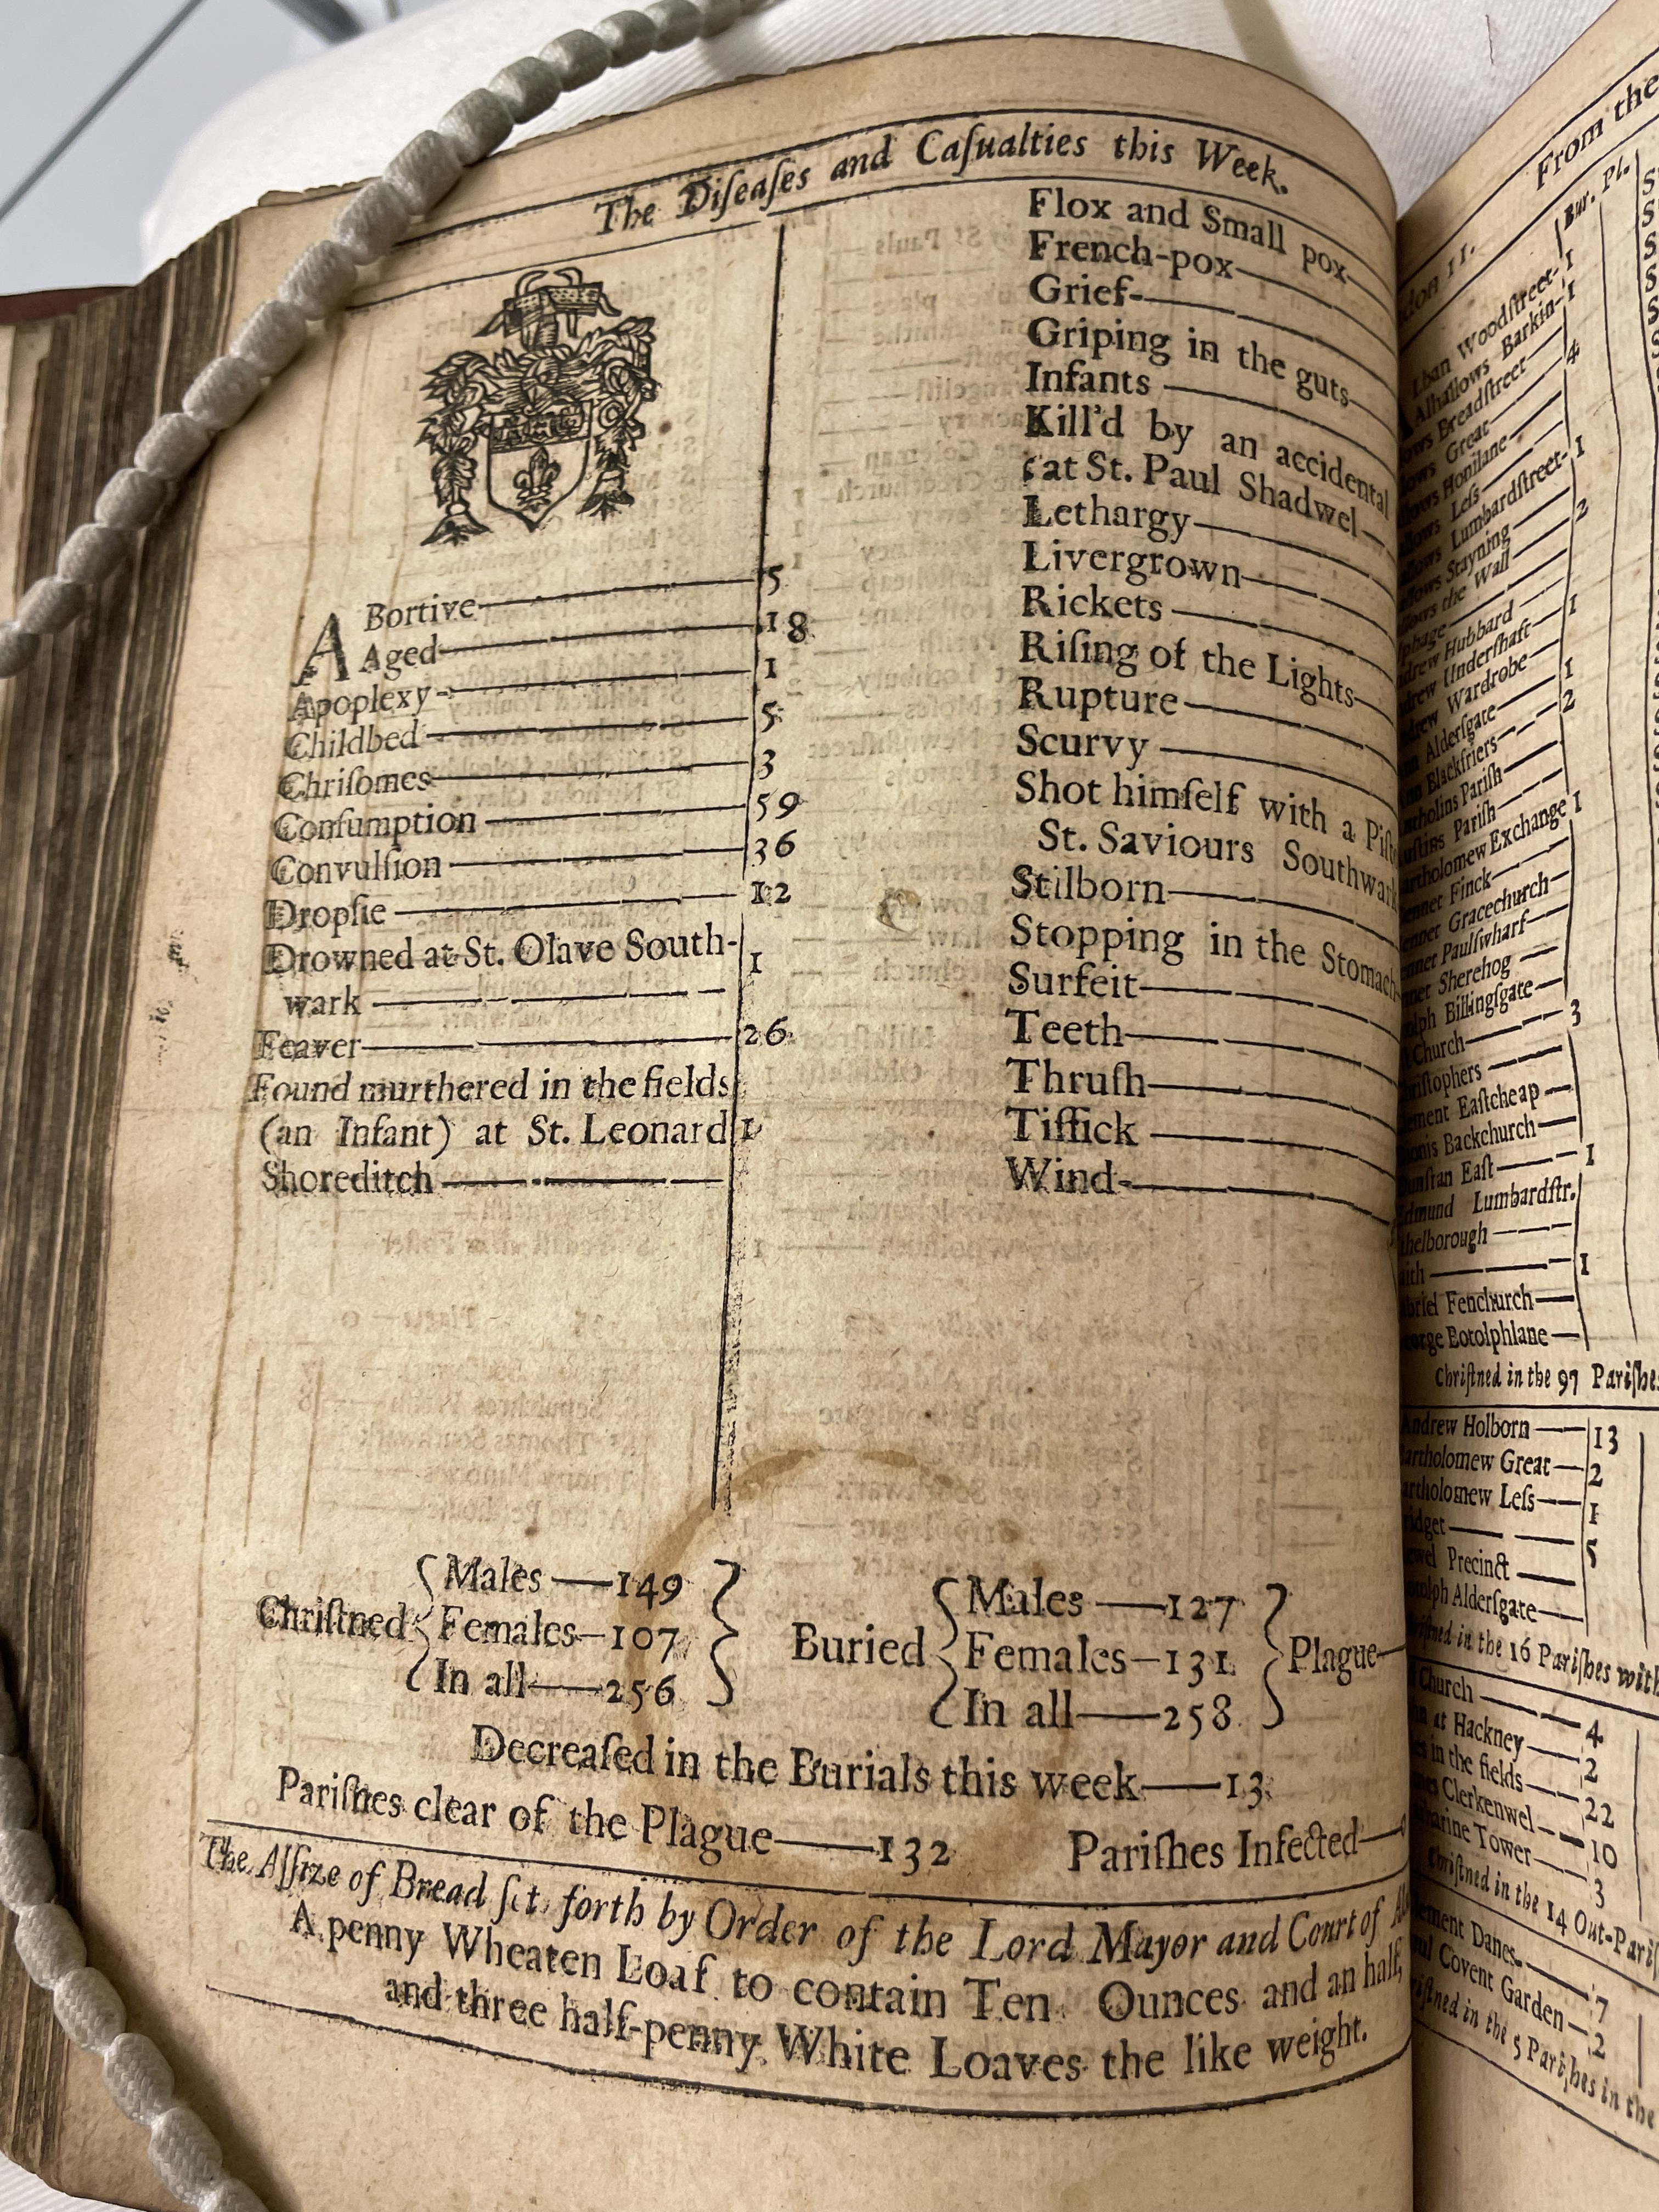 The Diſeaſes and Caſualties this Week.
ABortive 5
Aged 18
Apoplexy 1
Childbed 5
Chriſomes 3
Conſumption 59
Convulſion 36
Dropſie 12
Drowned at St. Olave South-
wark 1
Feaver 26
Found murthered in the fields
(an Infant) at St. Leonard 1
Shoreditch
Flox and Small pox
French-pox
Grief
Griping in the guts
Infants
Kill'd by an accidental
at St. Paul Shadwel
Lethargy
Livergrown
Rickets
Riſing of the Lights
Rupture
Scurvy
Shot himſelf with a
St. Saviours Southwark
Stilborn
Stopping in the Stomach
Surfeit
Teeth
Thruſh
Tiſſick
Wind
Chriſtned
Males — 149
Females — 107
In all — 256
Buried
Males — 127
Females — 131
In all — 258
Plague
Decreaſed in the Burials this week — 13
Pariſhes clear of the Plague — 132 Pariſhes Infected
The Aſſize of Bread ſet forth by Order of the Lord Mayor and Court of
A penny Wheaten Loaf to contain Ten Ounces and an half,
and three half-penny White Loaves the like weight.
From the
Bur. Pl.
Woodſtreet 1
Alhallows Barkin 1
Breadſtreet
Great 4
Honilane
Leſs
Lumbardſtreet 1
Stayning
the Wall 2
Hubbard
Underſhaft 1
Wardrobe
Alderſgate 1
Blackfriers 2
Pariſh
Pariſh
Exchange 1
Finck
Gracechurch
Paulſwharf
Sherehog
Billingſgate
Church 3
Eaſtcheap
Backchurch
Eaſt 1
Lumbardſtr.
1
Fenchurch
Botolphlane
Chriſtned in the 97 Pariſhes
Andrew Holborn 13
Bartholomew Great 2
Bartholomew Leſs 1
5
Precinct
Alderſgate
in the 16 Pariſhes with
Church 4
at Hackney 2
in the fields 22
Clerkenwel 10
Tower 3
Chriſtned in the 14 Out-Pariſ
Danes 7
Covent Garden 2
in the 5 Pariſhes in the